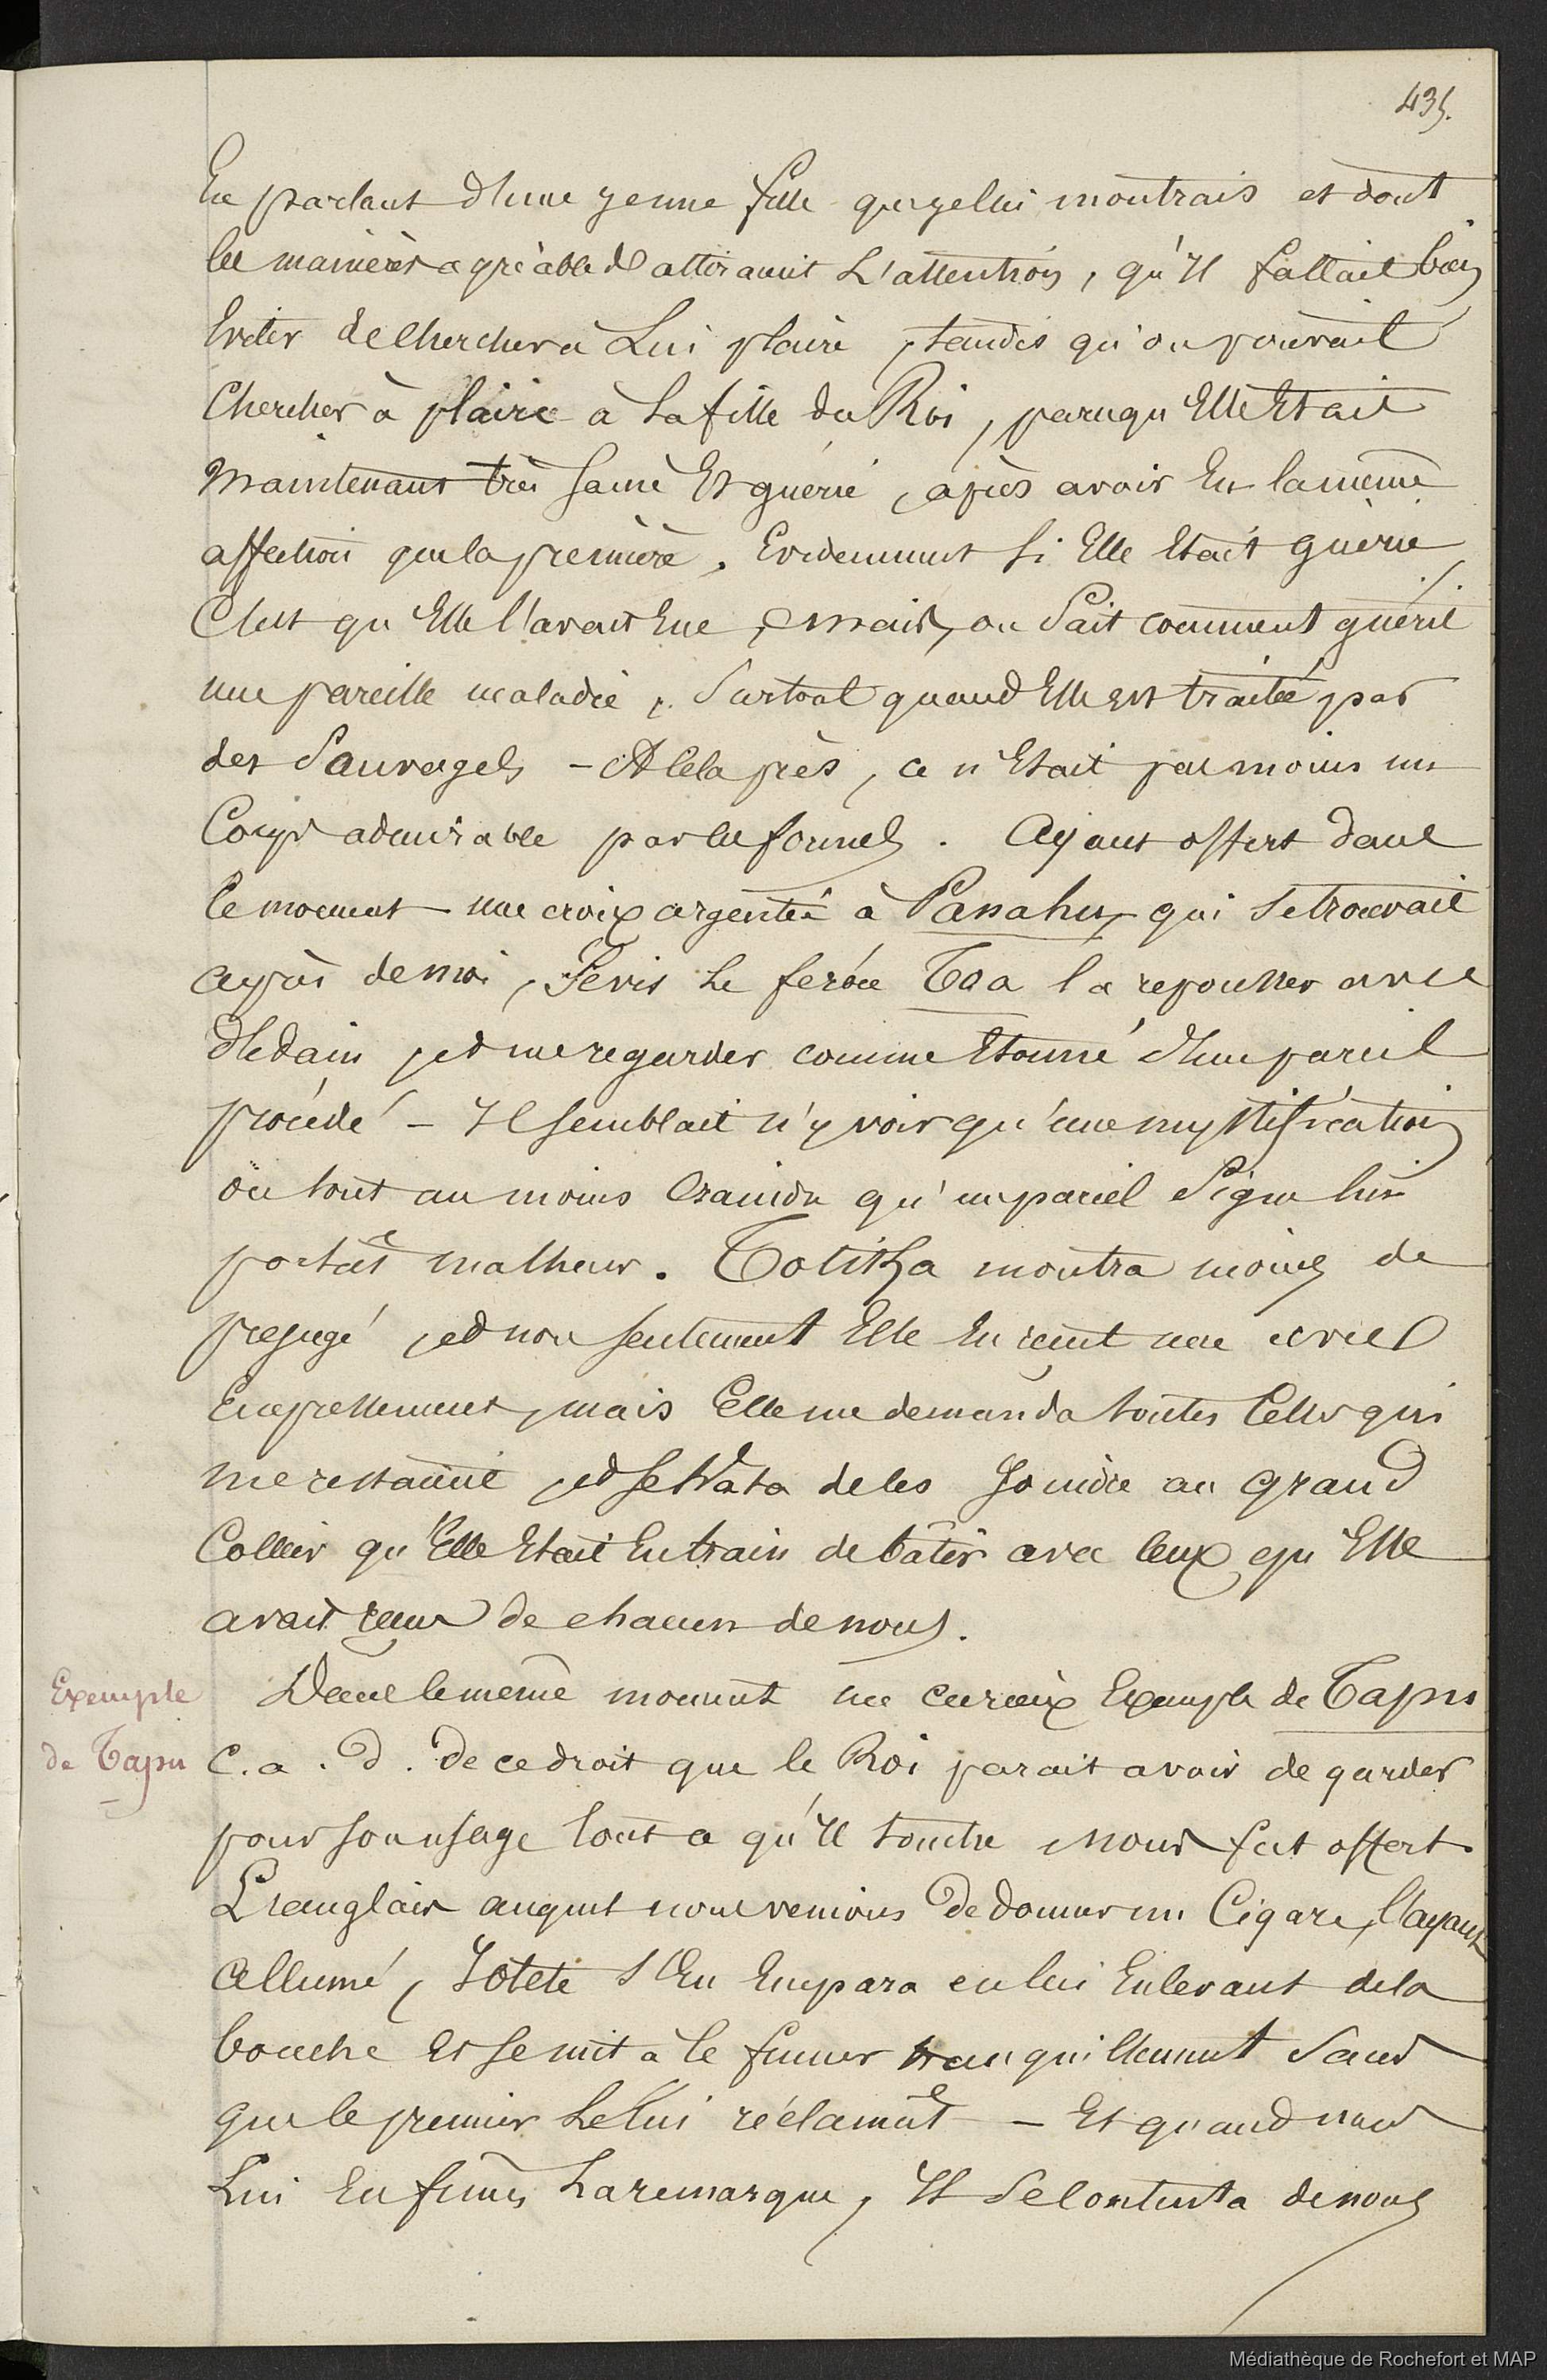 435.
En parlant d'une jeune fille que je lui montrais et dont
les manières agréables attiraient L'attention, qu'Il fallait bien
Eviter de chercher à Lui plaire, tandis qu'on pouvait
Chercher à plaire à La fille du Roi, parcequ'Elle Etait
Maintenant très saine Et guérie, après avoir Eu la même
affection que la première. Evidemment si Elle Etait guérie,
C'est qu'Elle l'avait Eue, mais, on Sait comment guérit
une pareille maladie, Surtout quand Elle est traitée par
des Sauvages - A Cela près, ce n'Etait pas moins un
Corps admirable par les formes. Ayant offert dans
Ce moment une croix argentée à Panahu, qui se trouvait
auprès de moi, Je vis le féroce Taa la repousser avec
dédain, et me regarder comme Etonné d'un pareil
procédé - Il semblait n'y voir qu'une mystification
ou tout au moins Craindre qu'un pareil Signe lui
portât malheur. Totitza montra moins de
préjugé, et non seulement Elle En reçut une avec
Empressement, mais Elle me demanda toutes Celles qui
me restaient, et se hâta de les Joindre au grand
Collier qu'Elle Etait En train de bâtir avec Ceux qu'Elle
avait reçus de chacun de nous.
Exemple
de Tapu
Dans le même moment un curieux Exemple de Tapu
C. a. d. de ce droit que le Roi parait avoir de garder
pour son usage tout ce qu'Il touche nous fut offert.
L'anglais auquel nous venions De donner un Cigare, l'ayant
allumé, Iotété s'En Empara en lui Enlevant de la
bouche Et se mit à le fumer tranquillement Sans
que le premier Le lui réclamât - Et quand nous
Lui En fimes La remarque, Il se contenta de nous
Médiathèque de Rochefort et MAP